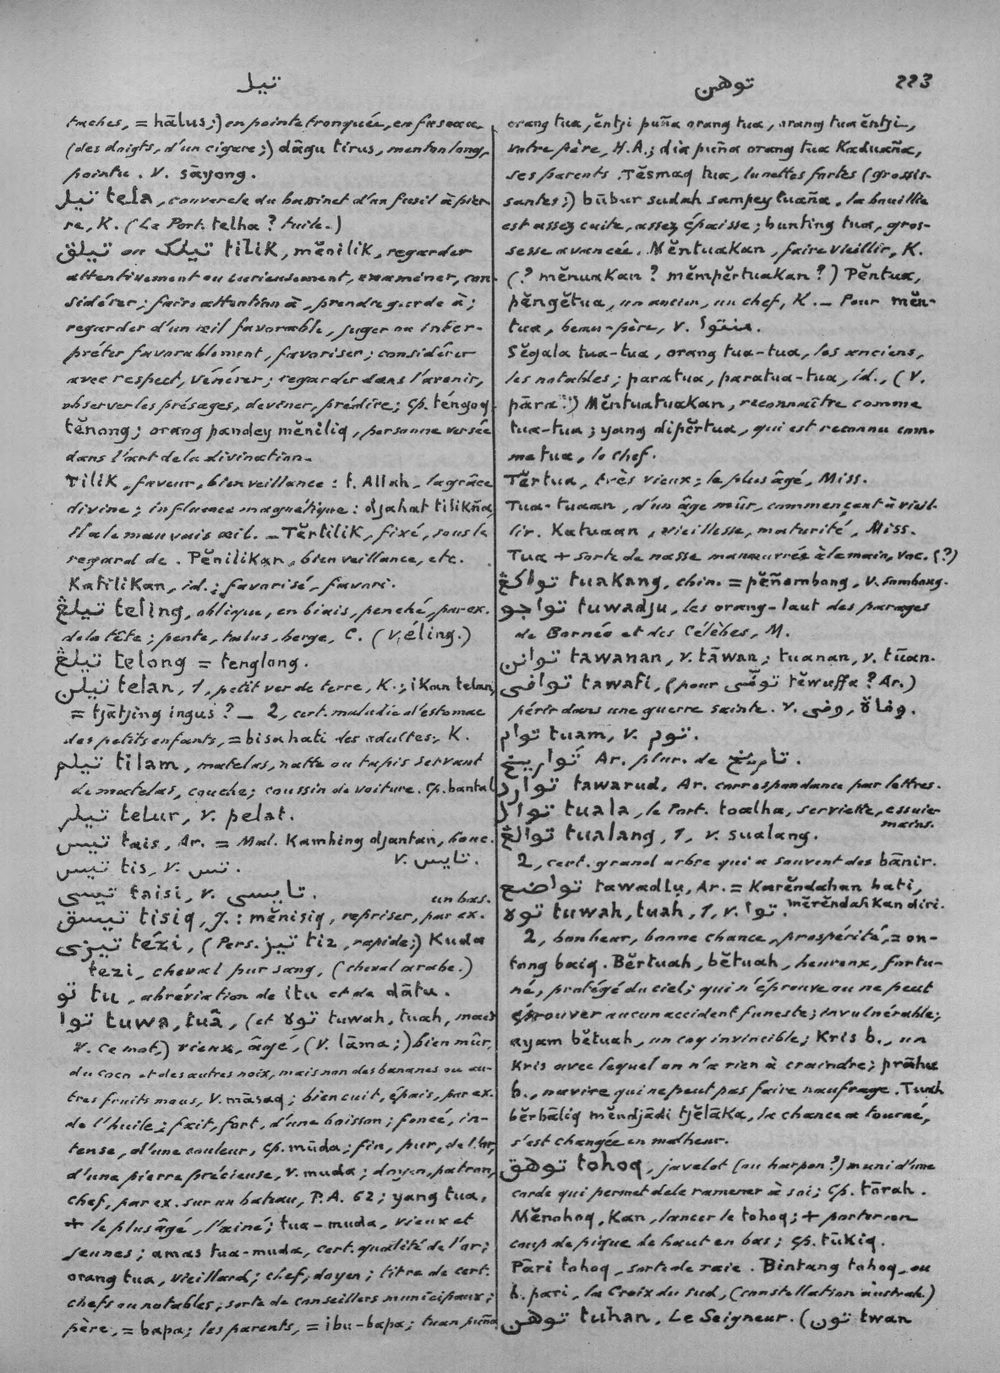 تيل
توهن
223
taches, = hālus;) en pointe tronquée, en fuseau
(des doigts, d'un cigare;) dāgu tirus, menton long,
pointu. V. sāyong.
تيل tela, couvercle du bassinet d'un fusil à pier-
re, K. (Le Port. telha? tuile.)
تيلق ou تيلک tilik, mĕnilik, regarder
attentivement ou curieusement, examiner, con-
sidérer; faire attention à, prendre garde à;
regarder d'un œil favorable, juger ou inter-
préter favorablement, favoriser; considérer
avec respect, vénérer; regarder dans l'avenir,
observer les présages, deviner, prédire; Cp. téngoq
tĕnong; orang pandey mĕniliq, personne versée
dans l'art de la divination.
Tilik, faveur, bienveillance: t. Allah, la grâce
divine; influence magnétique: djahat tilikña
il a le mauvais œil. _ Tĕrtilik, fixé, sous le
regard de. Pĕnilikan, bienveillance, etc.
Katilikan, id.; favorisé, favori.
تيلڠ teling, oblique, en biais, penché, par ex.
de la tête; pente, talus, berge, C. (V. éling.)
تيلڠ telong = tenglong.
تيلن telan, 1, petit ver de terre, K.; ikan telan,
= tjātjing ingus? _ 2, cert. maladie d'estomac
des petits enfants, = bisahati des adultes, K.
تيلم tilam, matelas, natte ou tapis servant
de matelas, couche; coussin de voiture. Cp. bantal
تيلر telur, v. pelat.
تيس tais, Ar. = Mal. Kambing djantan, bouc.
تيس tis, v. تس. v. تايس.
تيسى taisi, v. تايسى.
تيسق tisiq, J.: mĕnisiq, repriser, par ex. un bas.
تيزى tézi, (Pers. تيز tiz, rapide;) Kuda
tezi, cheval pur sang, (cheval arabe.)
تو tu, abréviation de itu et de dātu.
توا tuwa, tuā, (et توه tuwah, tuah, mais
V. ce mot.) vieux, âgé, (V. lāma;) bien mûr,
du coco et des autres noix, mais non des bananes ou au-
tres fruits mous, V. māsaq; bien cuit, épais, par ex.
de l'huile; fait, fort, d'une boisson; foncé, in-
tense, d'une couleur, Cp. mūda; fin, pur, de l'or,
d'une pierre précieuse, V. muda; doyen, patron,
chef, par ex. sur un bateau, P.A. 62; yang tua,
+ le plus âgé, l'aîné; tua-muda, vieux et
jeunes; amas tua-muda, cert. qualité de l'or;
orang tua, vieillard; chef, doyen; titre de cert.
chefs ou notables; sorte de conseillers municipaux;
père, = bapa; les parents, = ibu-bapa; tuan puña
orang tua, ĕntji puña orang tua, orang tua ĕntji,
votre père, H.A.; dia puña orang tua Kaduaña,
ses parents. Tĕsmaq tua, lunettes fortes (grossis-
santes;) būbur sudah sampey tuaña, la bouillie
est assez cuite, assez épaisse; bunting tua, gros-
sesse avancée. Mĕntuakan, faire vieillir, K.
(? mĕnuakan? mĕmpĕrtuakan?) Pĕntua,
pĕngĕtua, un ancien, un chef, K. _ Pour mĕn-
tua, beau-père, v. منتوا.
Sĕgala tua-tua, orang tua-tua, les anciens,
les notables; paratua, paratua-tua, id., (V.
pāra?) Mĕntuatuakan, reconnaître comme
tua-tua; yang dipĕrtua, qui est reconnu com-
me tua, le chef.
Tĕrtua, très vieux; le plus âgé, Miss.
Tua-tuaan, d'un âge mûr, commençant à vieil-
lir. Katuaan, vieillesse, maturité, Miss.
Tua + sorte de nasse manœuvrée à la main, voc. (?)
تواكڠ tuakang, chin. = pĕñombong, V. sambong.
تواجو tuwadju, les orang-laut des parages
de Bornéo et des Célèbes, M.
توانن tawanan, v. tāwan; tuanan, v. tūan.
توافى tawafi, (pour توفّى tĕwuffa? Ar.)
périr dans une guerre sainte. V. وفى, وفاة.
توام tuam, v. توم.
تواريخ Ar. plur. de تاريخ.
توارد tawarud, Ar. correspondance par lettres.
توال tuala, le Port. toalha, serviette, essuie-mains.
توالڠ tualang, 1, v. sualang.
2, cert. grand arbre qui a souvent des bānir.
تواضع tawadlu, Ar. = Karĕndahan hati,
mĕrĕndahkan diri.
توه tuwah, tuah, 1, v. توا.
2, bonheur, bonne chance, prospérité, = on-
tong baiq. Bĕrtuah, bĕtuah, heureux, fortu-
né, protégé du ciel; qui n'éprouve ou ne peut
éprouver aucun accident funeste; invulnérable;
ayam bĕtuah, un coq invincible; Kris b., un
Kris avec lequel on n'a rien à craindre; prāhu
b., navire qui ne peut pas faire naufrage. Tuah
bĕrbāliq mĕndjādi tjĕlāka, la chance a tourné,
s'est changée en malheur.
توهق tohoq, javelot (ou harpon?) muni d'une
corde qui permet de le ramener à soi; Cp. tōrah.
Mĕnohoq, Kan, lancer le tohoq; + porter un
coup de pique de haut en bas; Cp. tūkiq.
Pāri tohoq, sorte de raie. Bintang tohoq, ou
b. pari, la Croix du Sud, (constellation australe.)
توهن tuhan, Le Seigneur. (تون twan